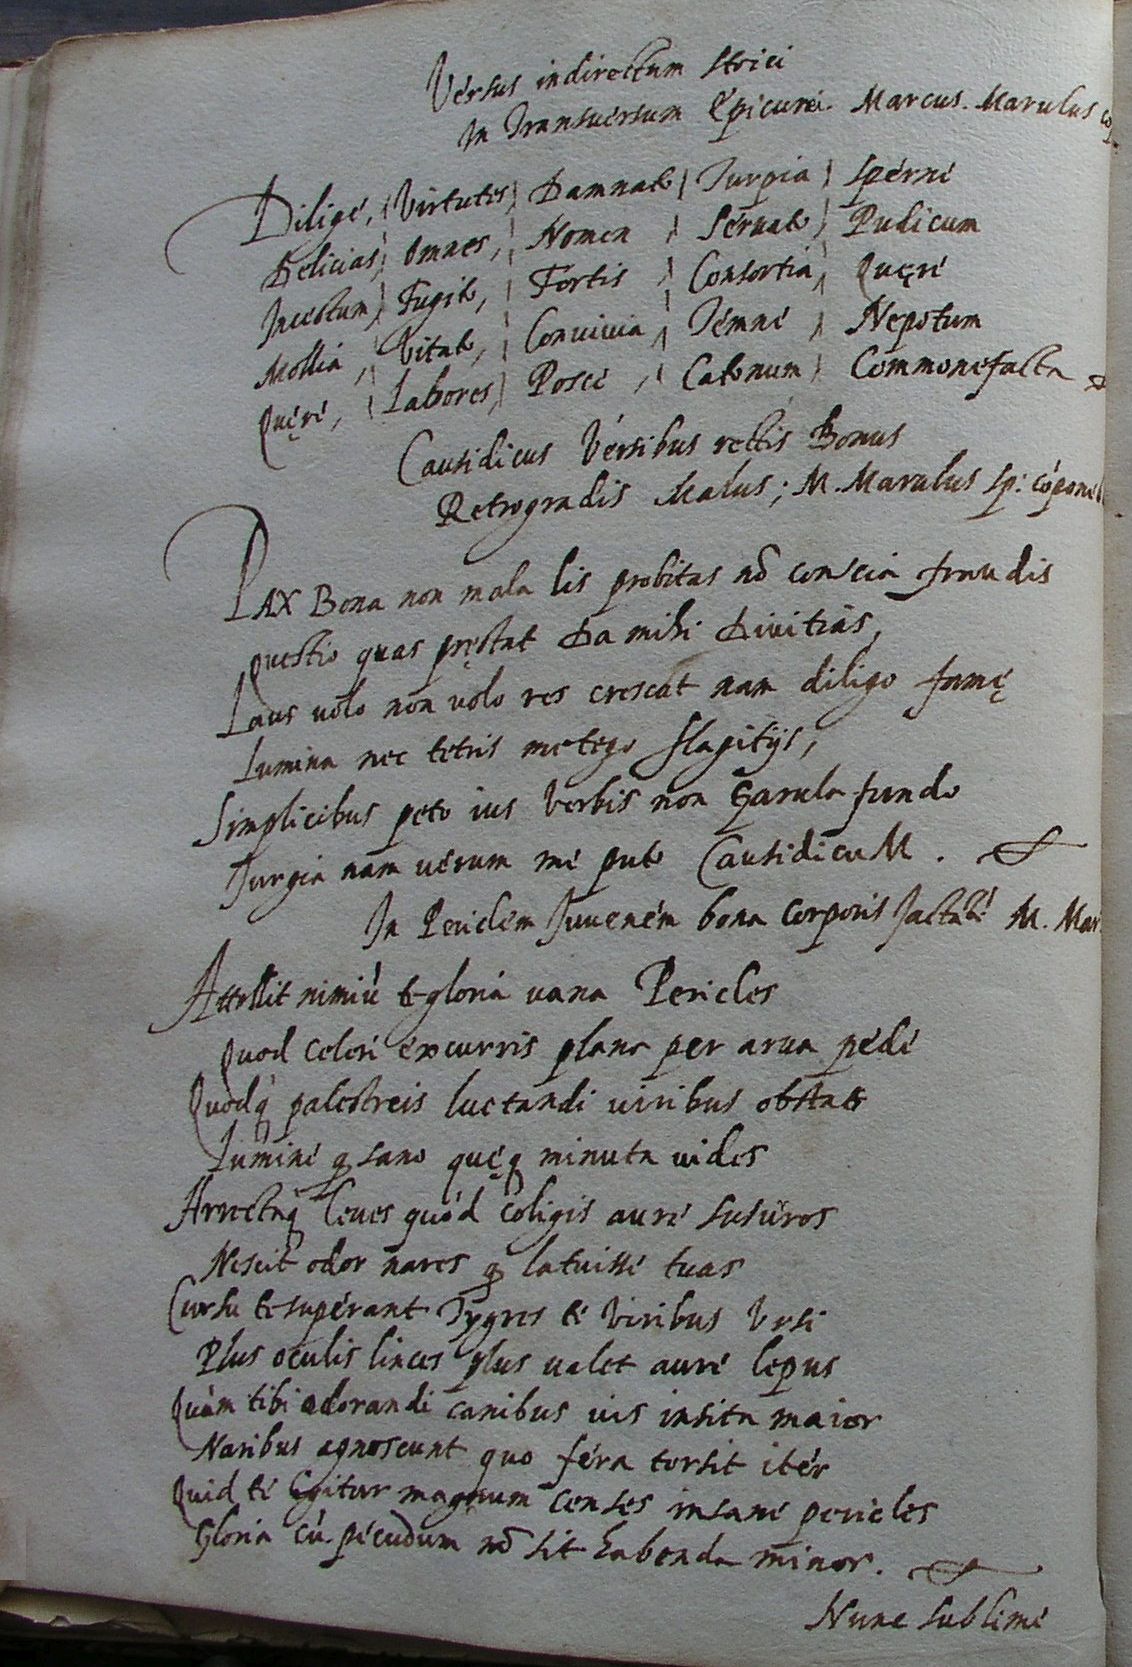 Versus indirectum stoici
In Transuersum Epicurei. Marcus. Marulus
Dilige, | Virtutes | Damnato | Turpia | sperne
Delicias | omnes, | Nomen | seruato | Pudicum
Incestum | Fugito, | Fortis | Consortia, | Quęre
Mollia, | Vitato, | Conuiuia | Temne | Nepotum
Quęre, | Labores | Posce, | Catonum | Commonefacta
Causidicus Versibus rectis Bonus
Retrogradis Malus; M. Marulus Sp: cōpone
PAX Bona non mala lis probitas nō conscia fraudis
Questio quas pręstat Da mihi Diuitias,
Laus uolo non uolo res crescāt nam diligo famę
Lumina nec tetris metego flagitijs,
Simplicibus peto ius Verbis non Garula fundo
Iurgia nam uerum me puto CausidicuM.
In Periclem Iuuenem bona corporis Iactātē M. Mar
Attollit nimiū te gloria uana Pericles
Quod celeri excurris plana per arua pede
Quodq́ palestreis luctandi uiribus obstas
Lumine q sano quęq minuta uides
Arrectaq́ leues quód coligis aure susúros
Nescit odor nares q latuisse tuas
Cursu te superant Tygres te Viribus Vrsi
Plus oculis linces plus ualet aure lepus
Quàm tibi odorandi canibus uis insita maior
Naribus agnoscunt quo fera torsit iter
Quid te Igitur magnum censes insane pericles
Gloria cū pecudum nō sit habenda minor.
Nunc sublime